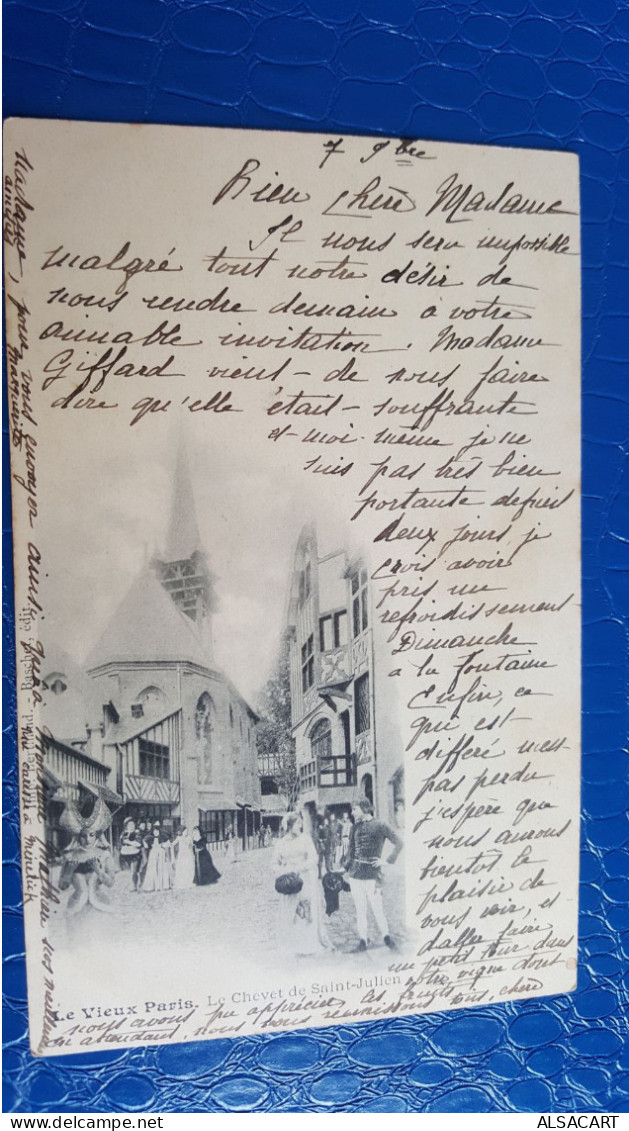 7 9bre
Bien chère Madame
Il nous sera impossible
malgré tout notre désir de
nous rendre demain à votre
aimable invitation. Madame
Giffard vient de nous faire
dire qu'elle était souffrante
et moi-même je ne
suis pas très bien
portante depuis
deux jours, je
crois avoir
pris un
refroidissement
Dimanche
à la Fontaine
Enfin, ce
qui est
différé n'est
pas perdu
j'espère que
nous aurons
bientôt le
plaisir de
vous voir, et
d'aller faire
un petit tour dans
votre vigne dont
nous avons pu apprécier les fruits
en attendant, nous nous réunissons tous, chère
Madame, pour vous envoyer ainsi qu'à Monsieur
nos meilleurs
amitiés
Le Vieux Paris. Le Chevet de Saint-Julien
édit.
ALSACART